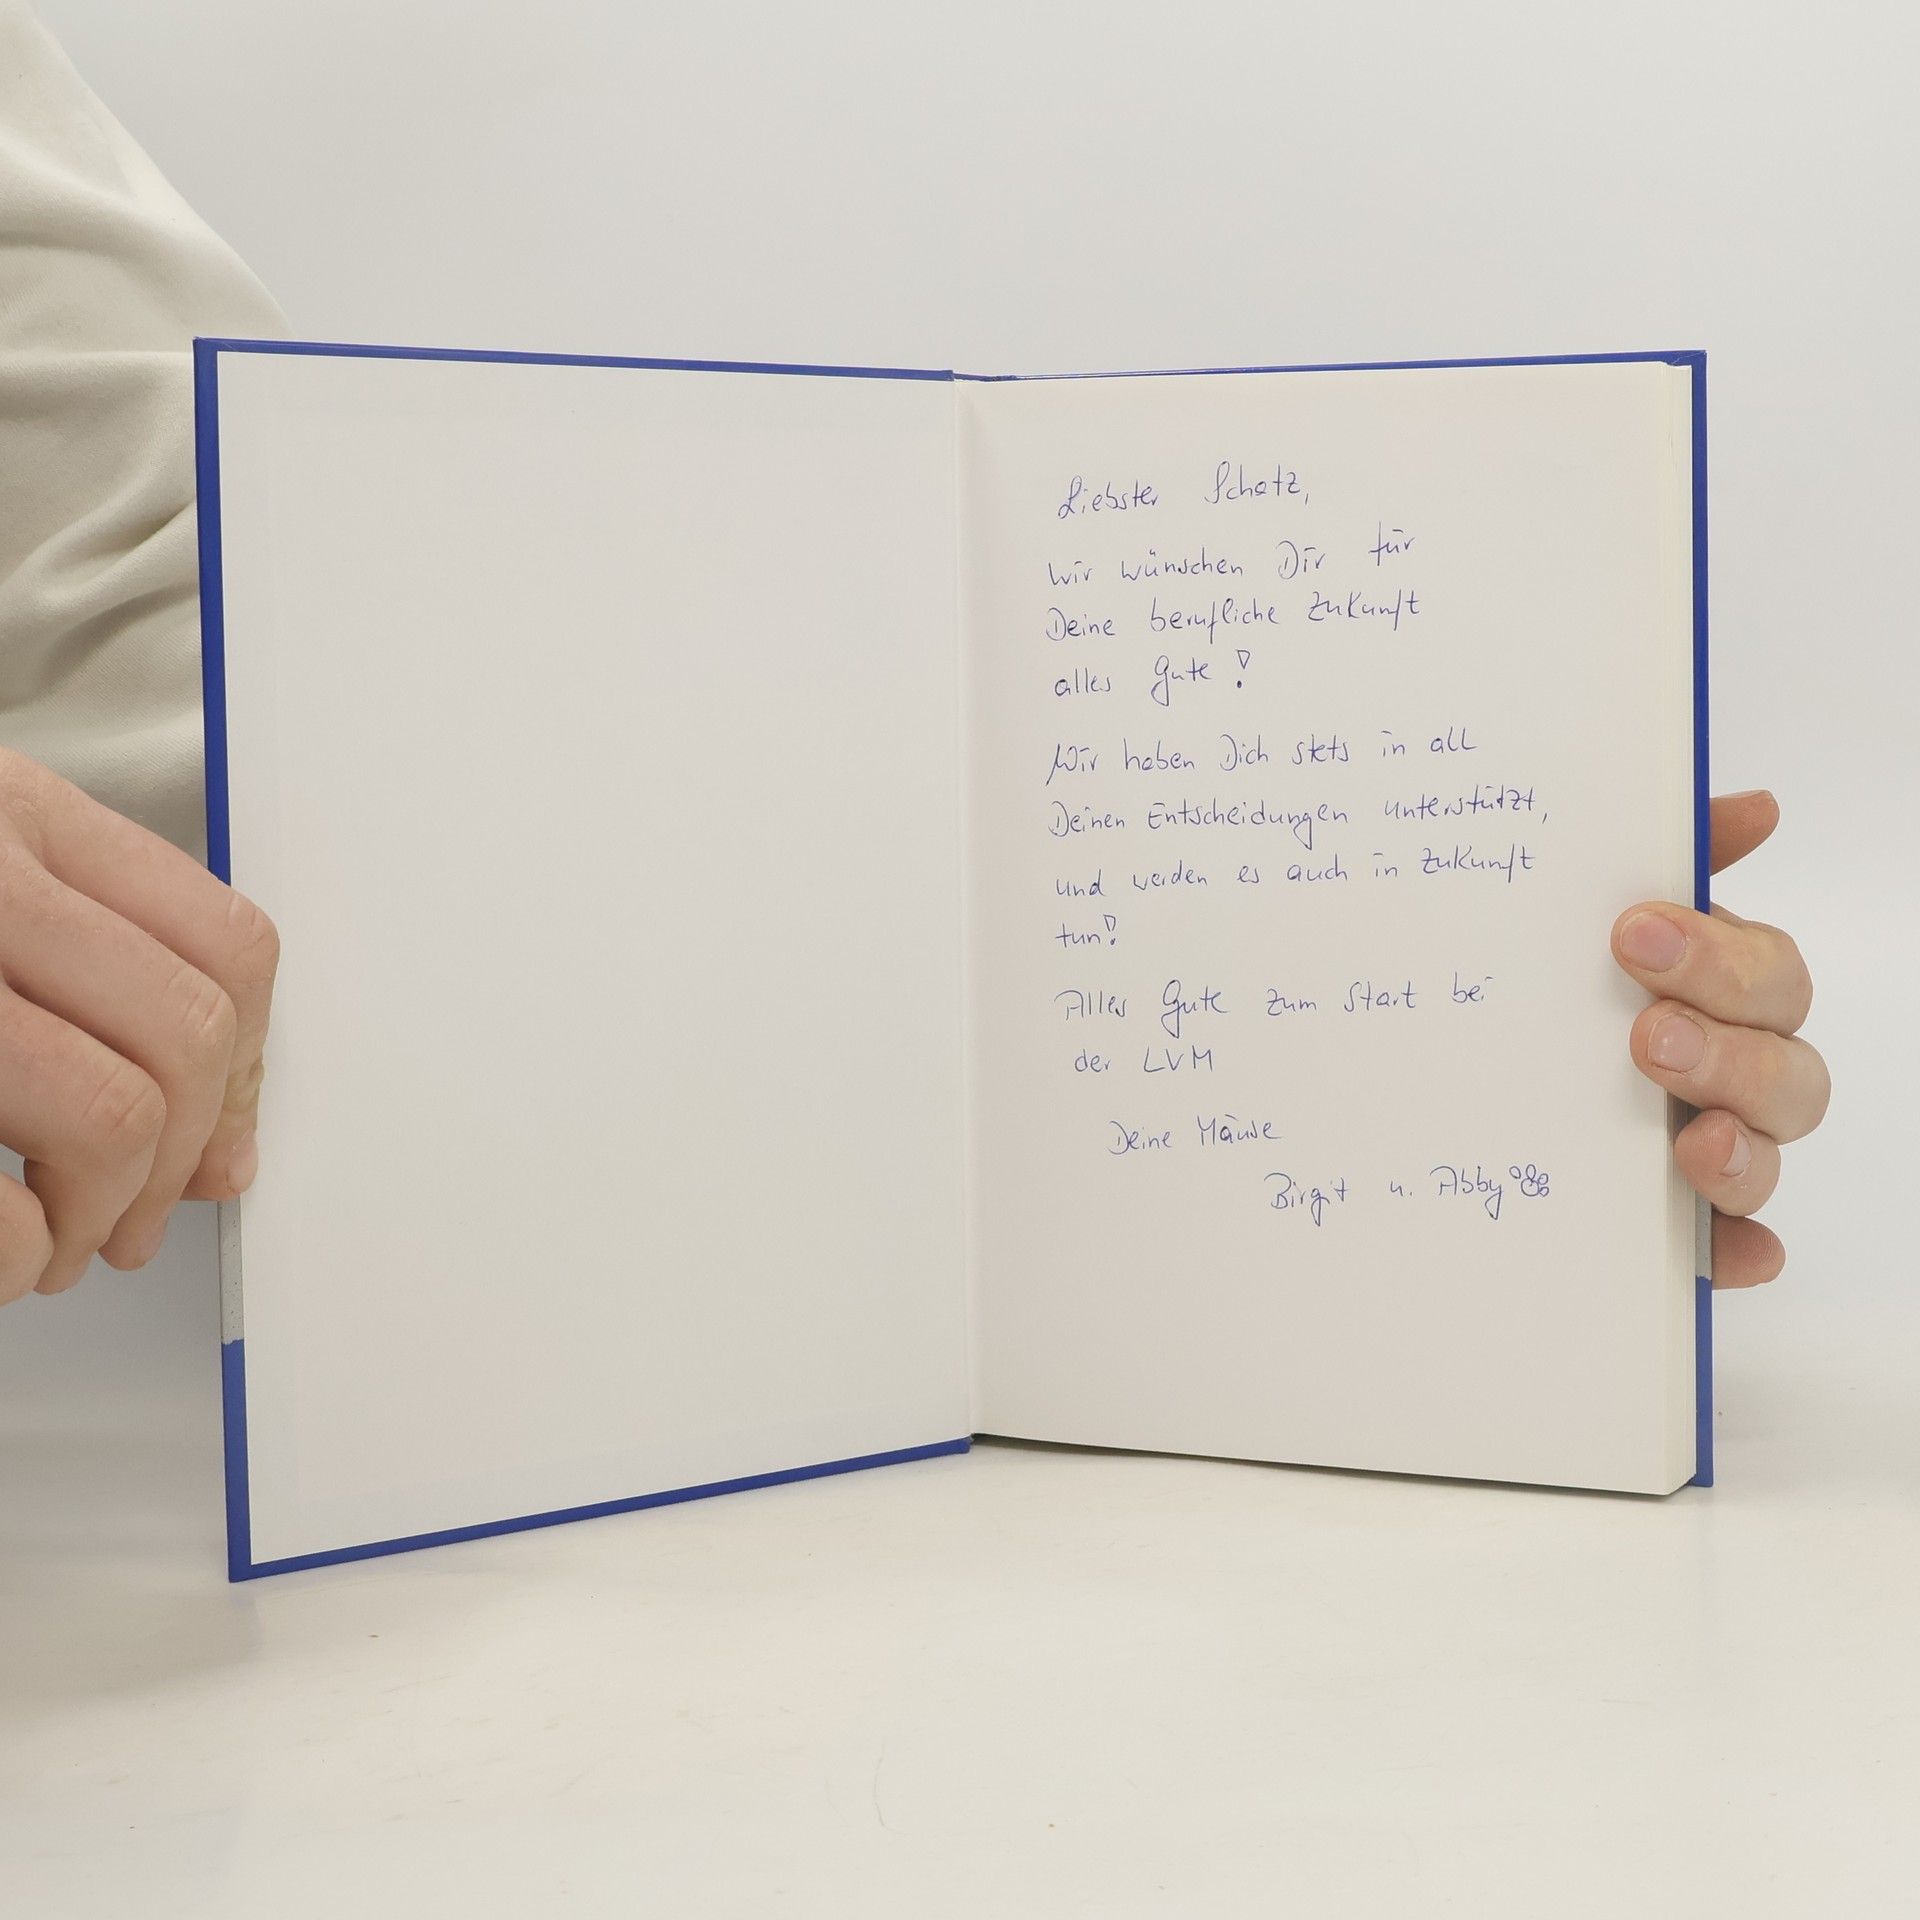 Liebster Schatz,
wir wünschen Dir für
Deine berufliche Zukunft
alles Gute!
Wir haben Dich stets in all
Deinen Entscheidungen unterstützt,
und werden es auch in Zukunft
tun!
Alles Gute zum Start bei
der LVM
Deine Mäuse
Birgit u. Abby